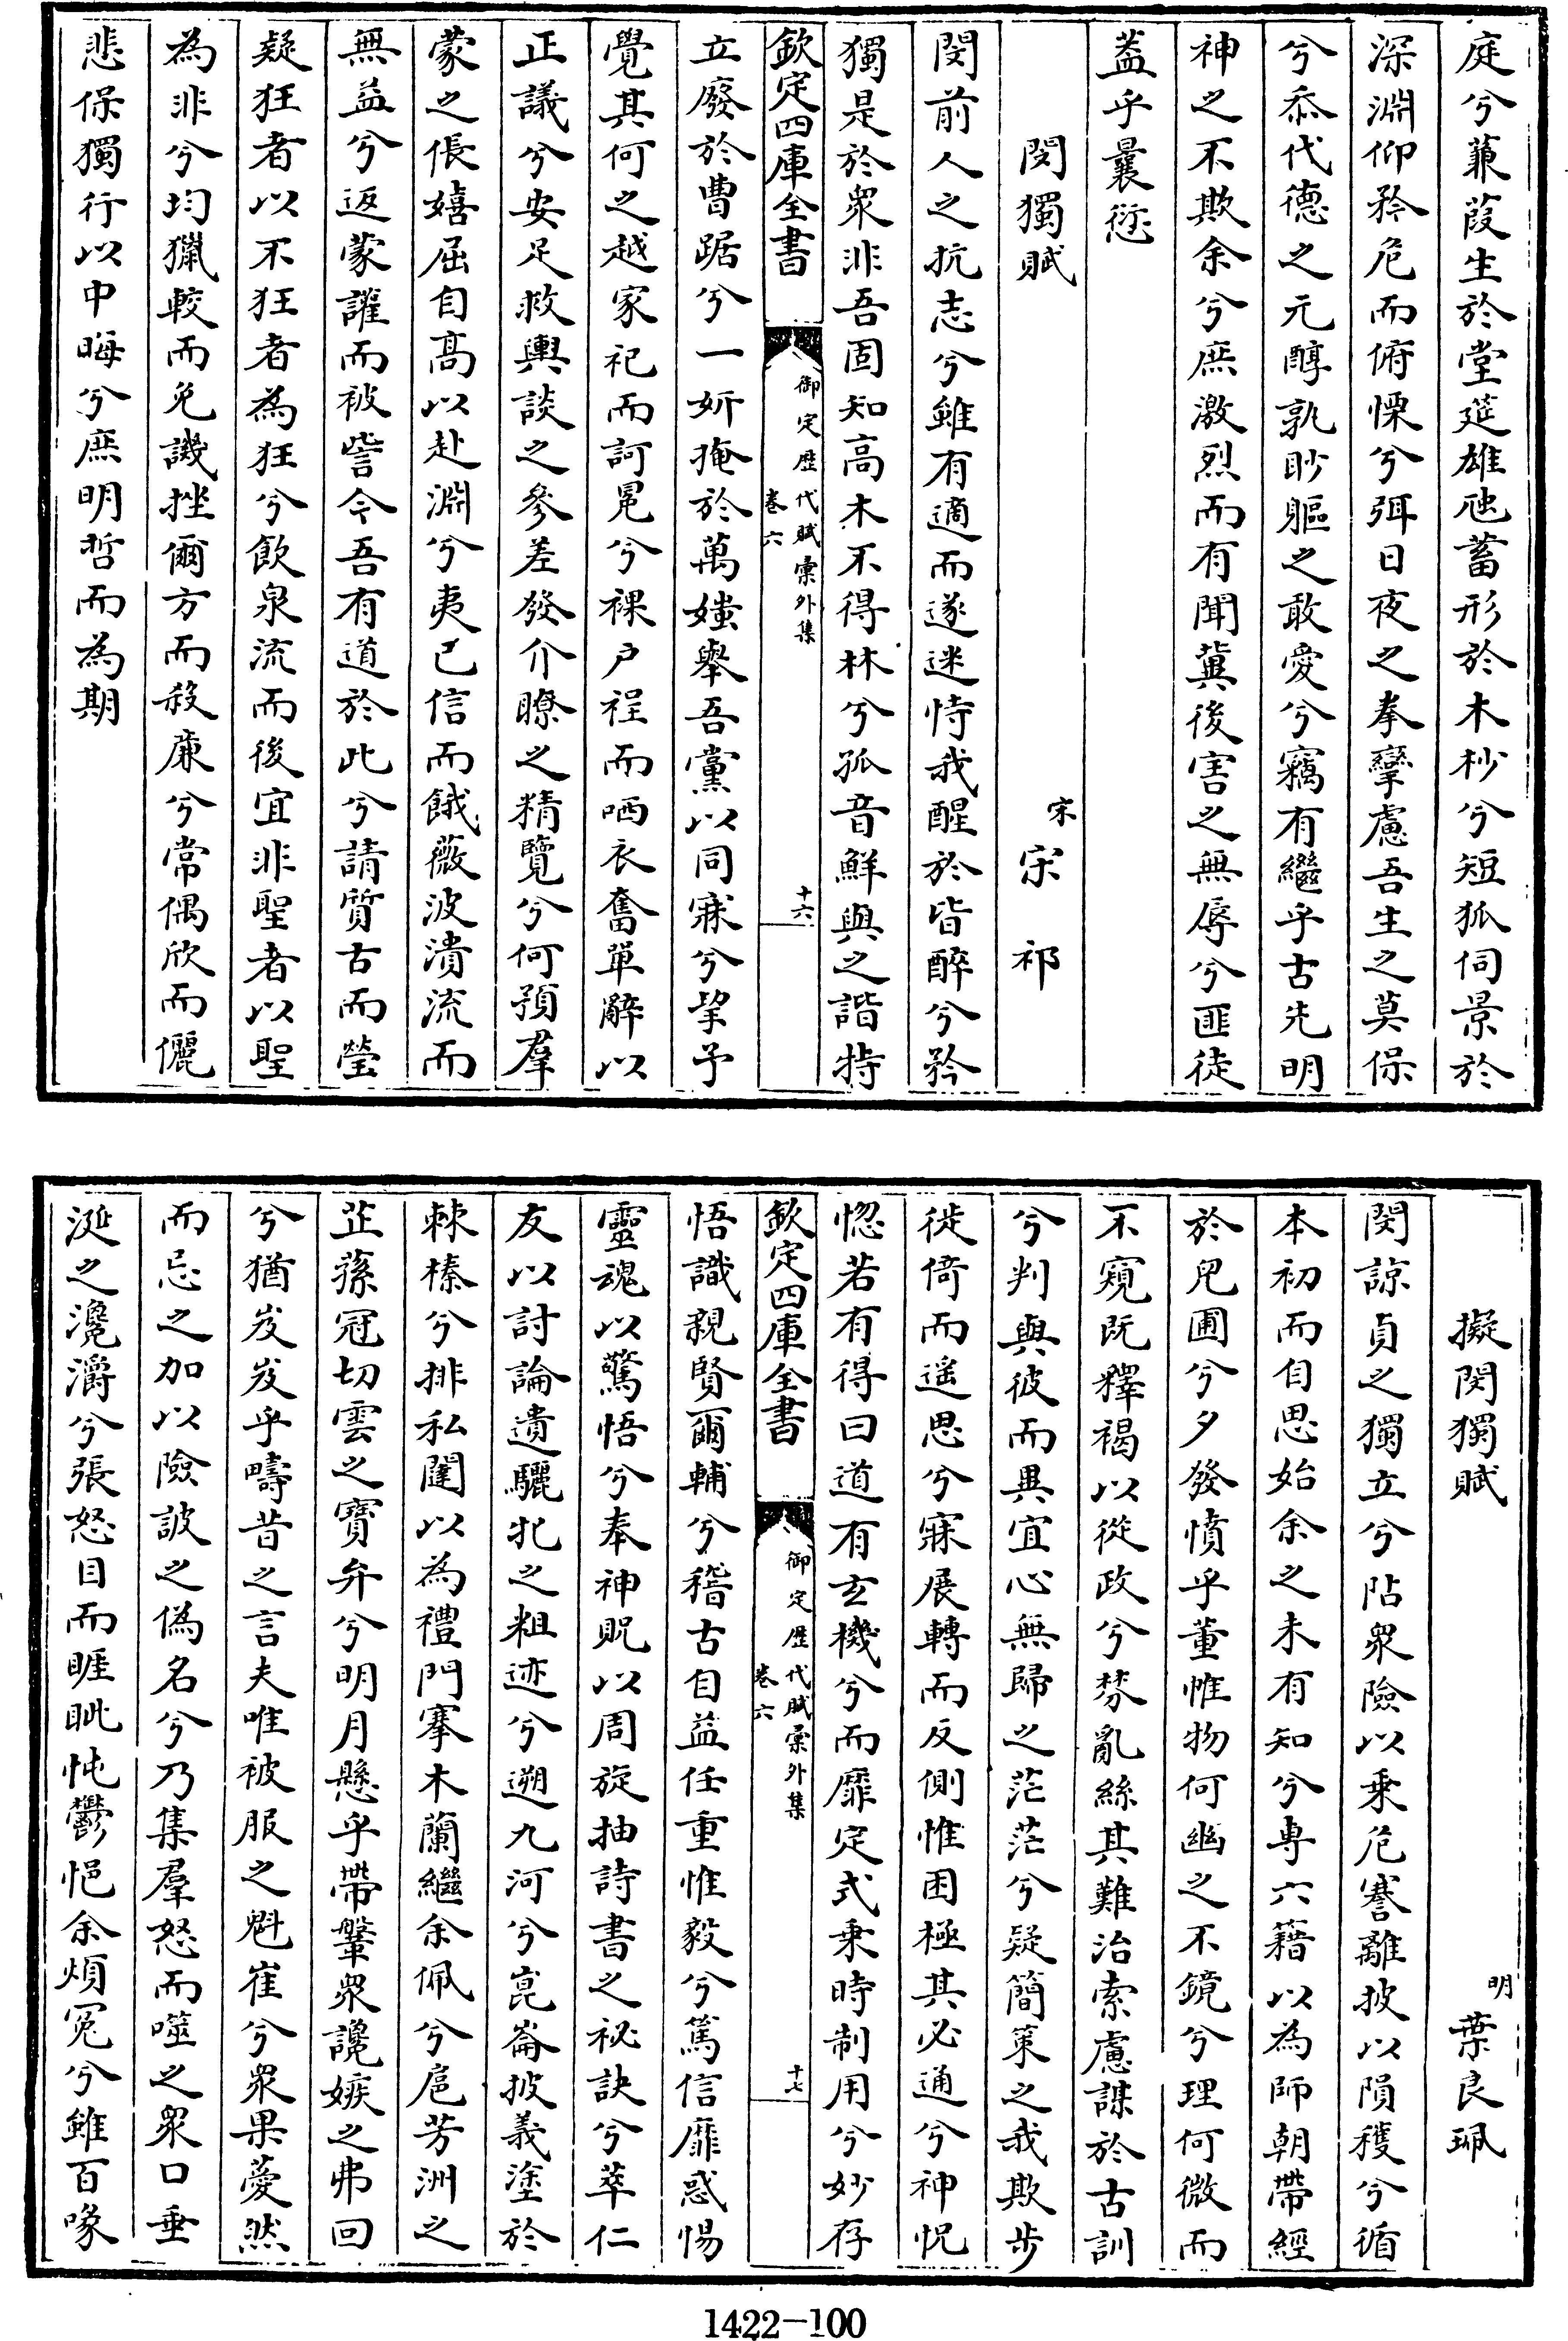 庭兮蒹葭生於堂筵雄虺蓄形於木杪兮短狐伺景於
深淵仰矜危而俯慄兮弭日夜之拳攣慮吾生之莫保
兮忝代德之元醇孰眇軀之敢愛兮竊有繼乎古先明
神之不欺余兮庶激烈而有聞冀後害之無辱兮匪徒
葢乎曩愆
閔獨賦
宋 宋祁
閔前人之抗志兮雖有適而遂迷恃我醒於皆醉兮矜
獨是於衆非吾固知高木不得林兮孤音鮮與之諧特
欽定四庫全書
御定歴代賦彙外集
卷六
十六
立廢於曹踞兮一妍掩於萬媸舉吾黨以同寐兮挈予
覺其何之越家祀而訶冕兮裸戸裎而哂衣奮單辭以
正議兮安足救輿談之參差發介瞭之精覽兮何預羣
蒙之倀嬉屈自高以赴淵兮夷已信而餓薇波潰流而
無益兮返蒙讙而被訾今吾有道於此兮請質古而瑩
疑狂者以不狂者為狂兮飲泉流而後宜非聖者以聖
為非兮均獵較而免譏挫爾方而殺廉兮常偶欣而儷
悲保獨行以中晦兮庶明哲而為期
擬閔獨賦
明 葉良珮
閔諒貞之獨立兮阽衆險以乗危謇離披以隕穫兮循
本初而自思始余之未有知兮専六籍以為師朝帶經
於兒圃兮夕發憤乎董帷物何幽之不鏡兮理何微而
不窺既釋褐以從政兮棼亂絲其難治索慮謀於古訓
兮判與彼而異宜心無歸之茫茫兮疑簡䇿之我欺步
徙倚而遥思兮寐展轉而反側惟困極其必通兮神怳
惚若有得曰道有玄機兮而靡定式乗時制用兮妙存
欽定四庫全書
御定歴代賦彙外集
卷六
十七
悟識親賢爾輔兮稽古自益任重惟毅兮篤信靡惑惕
靈魂以驚悟兮奉神貺以周旋抽詩書之祕訣兮萃仁
友以討論遺驪牝之粗迹兮遡九河兮崑崙披義塗於
棘榛兮排私闥以為禮門搴木蘭繼余佩兮扈芳洲之
芷蓀冠切雲之寶弁兮明月懸乎帶鞶衆讒嫉之弗回
兮猶岌岌乎疇昔之言夫唯被服之魁崔兮衆果薆然
而忌之加以險詖之偽名兮乃集羣怒而噬之衆口垂
涎之瀺灂兮張怒目而睚眦忳鬱悒余煩冤兮雖百喙
1422-100